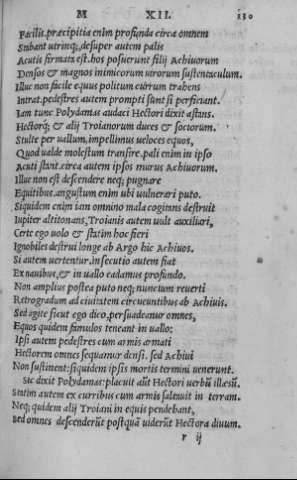 M XII. 130
Facilis. præcipitia enim profunda circa omnem
Stabant utrinq;, desuper autem palis
Acutis firmata est. hos posuerunt filij Achiuorum
Densos & magnos inimicorum uirorum sustentaculum.
Illuc non facile equus politum currum trahens
Intrat. pedestres autem prompti sunt si perficiant.
Iam tunc Polydamas audaci Hectori dixit astans.
Hectorq; & alij Troianorum duces & sociorum.
Stulte per uallum, impellimus ueloces equos,
Quod ualde molestum transire. pali enim in ipso
Acuti stant. circa autem ipsos murus Achiuorum.
Illuc non est descendere neq; pugnare
Equitibus. angustum enim ubi vulnerari puto.
Siquidem enim iam omnino mala cogitans destruit
Iupiter altitonans, Troianis autem uult auxiliari,
Certe ego uolo & statim hoc fieri
Ignobiles destrui longe ab Argo hic Achiuos.
Si autem uertentur. insecutio autem fiat
Ex nauibus, & in uallo cadamus profundo.
Non amplius postea puto neq; nuncium reuerti
Retrogradum ad ciuitatem circueuntibus ab Achiuis.
Sed agite sicut ego dico, persuadeamur omnes,
Equos quidem famulos teneant in uallo:
Ipsi autem pedestres cum armis armati
Hectorem omnes sequamur densi. sed Achiui
Non sustinent: siquidem ipsis mortis termini uenerunt.
Sic dixit Polydamas: placuit aūt Hectori uerbū illæsū.
Statim autem ex curribus cum armis saliuit in terram.
Neq; quidem alij Troiani in equis pendebant,
Sed omnes descenderūt postquā uiderūt Hectora diuum.
r ij